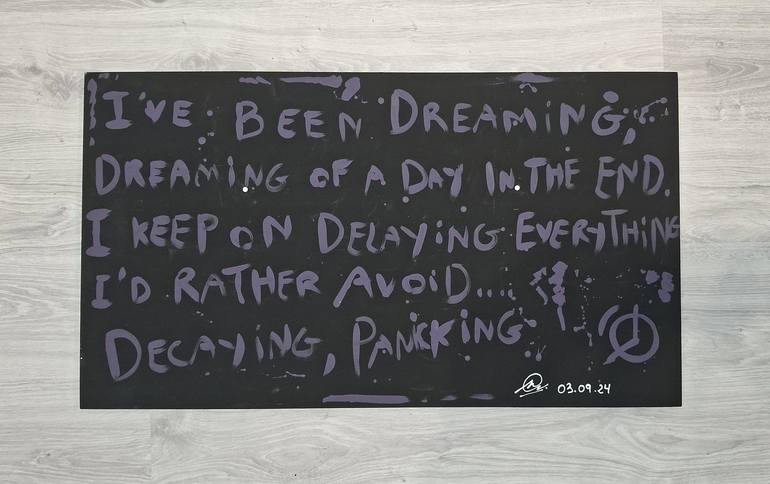 I'VE BEEN DREAMING,
DREAMING OF A DAY IN THE END.
I KEEP ON DELAYING EVERYTHING
I'D RATHER AVOID....
DECAYING, PANICKING
03.09.24